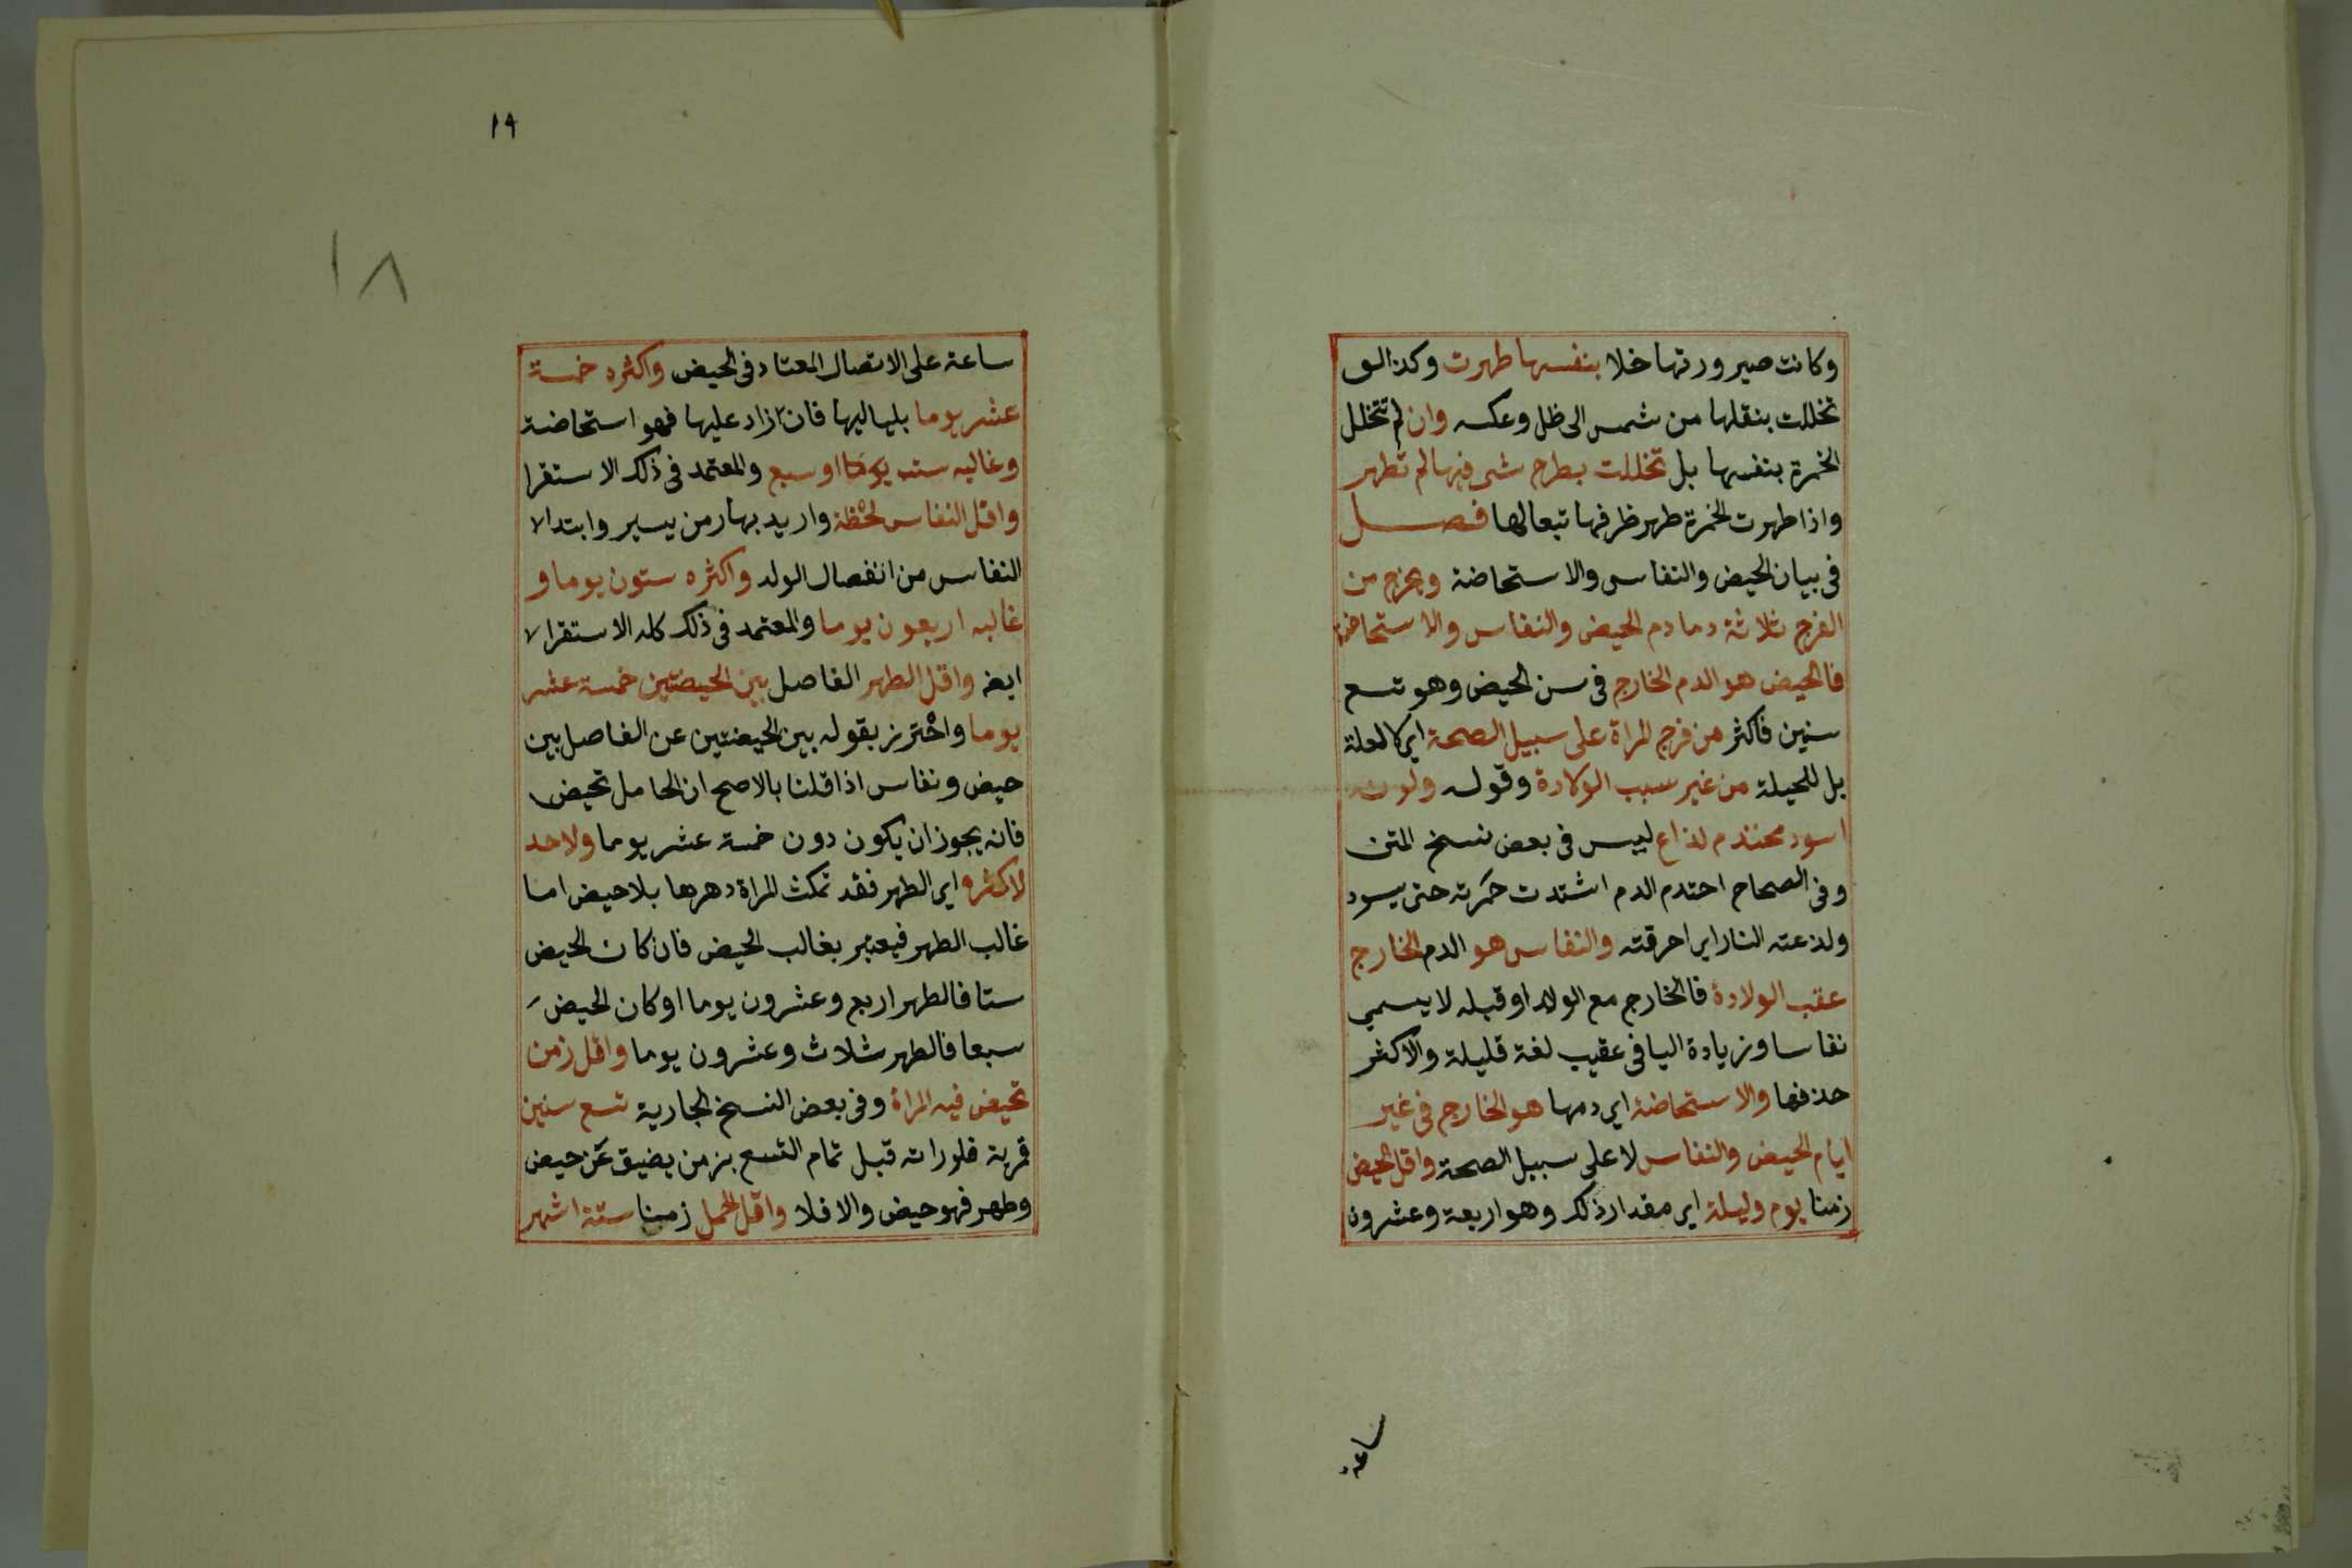 وكانت صيرورتها خلا بنفسها طهرت وكذا لو
تخللت بنقلها من شمس الى ظل وعكسه وان لم تتخلل
الخمرة بنفسها بل تخللت بطرح شي فيها لم تطهر
واذا طهرت الخمرة طهر ظرفها تبعا لها فصل
في بيان الحيض والنفاس والاستحاضة ويخرج من
الفرج ثلاثة دما دم الحيض والنفاس والاستحاضة
فالحيض هو الدم الخارج في سن الحيض وهو تسع
سنين فاكثر من فرج المراة على سبيل الصحة اي لا لعلة
بل للجبلة من غير سبب الولادة وقوله ولونه
اسود محتدم لذاع ليس في بعض نسخ المتن
وفي الصحاح احتدم الدم اشتدت حمرته حتى يسود
ولذعته النار اي احرقته والنفاس هو الدم الخارج
عقب الولادة فالخارج مع الولد او قبله لا يسمي
نفاسا وزيادة اليا في عقيب لغة قليلة والاكثر
حذفها والاستحاضة اي دمها هو الخارج في غير
ايام الحيض والنفاس لا على سبيل الصحة واقل الحيض
زمنا يوم وليلة اي مقدار ذلك وهو اربعة وعشرون
ساعة
١٩
١٨
ساعة على الاتصال المعتاد في الحيض واكثره خمسة
عشر يوما بلياليها فان زاد عليها فهو استحاضة
وغالبه ست او سبع والمعتمد في ذلك الاستقرا
واقل النفاس لحظة واريد بها زمن يسير وابتدا
النفاس من انفصال الولد واكثره ستون يوما و
غالبه اربعون يوما والمعتمد في ذلك كله الاستقرا
ايضه واقل الطهر الفاصل بين الحيضتين خمسة عشر
يوما واحترز بقوله بين الحيضتين عن الفاصل بين
حيض ونفاس اذا قلنا بالاصح ان الحامل تحيض
فانه يجوز ان يكون دون خمسة عشر يوما ولا حد
لاكثره اي الطهر فقد تمكث المراة دهرها بلا حيض اما
غالب الطهر فيعتبر بغالب الحيض فان كان الحيض
ستا فالطهر اربع وعشرون يوما او كان الحيض
سبعا فالطهر ثلاث وعشرون يوما واقل زمن
تحيض فيه المراة وفي بعض النسخ الجارية تسع سنين
قمرية فلو راته قبل تمام التسع بزمن يضيق عن حيض
وطهر فهو حيض والا فلا واقل الحمل زمنا ستة اشهر